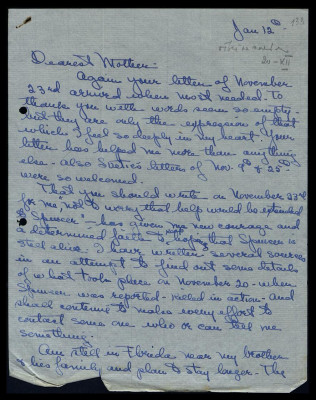 Jan 12th
133
30-VII
Dearest Mother:-
Again your letter of November
23rd arrived when most needed. To
thank you with words seem so empty,
but they are only the expression of that
which I feel so deeply in my heart. Your
letter has helped me more than anything
else. Also letters of Nov. 9th & 25th
were so welcomed.
That you should write on November 23rd
for me "not to worry, that help would be extended
to Spencer" - has given me new courage and
a determined faith & hope that Spencer is
still alive. I have written several sources
in an attempt to find out some details
of what took place on November 20 - when
Spencer was reported - killed in action - and
shall continue to make every effort to
contact some one who can tell me
something.
Am still in Florida near my brother
& his family and plan to stay longer. The